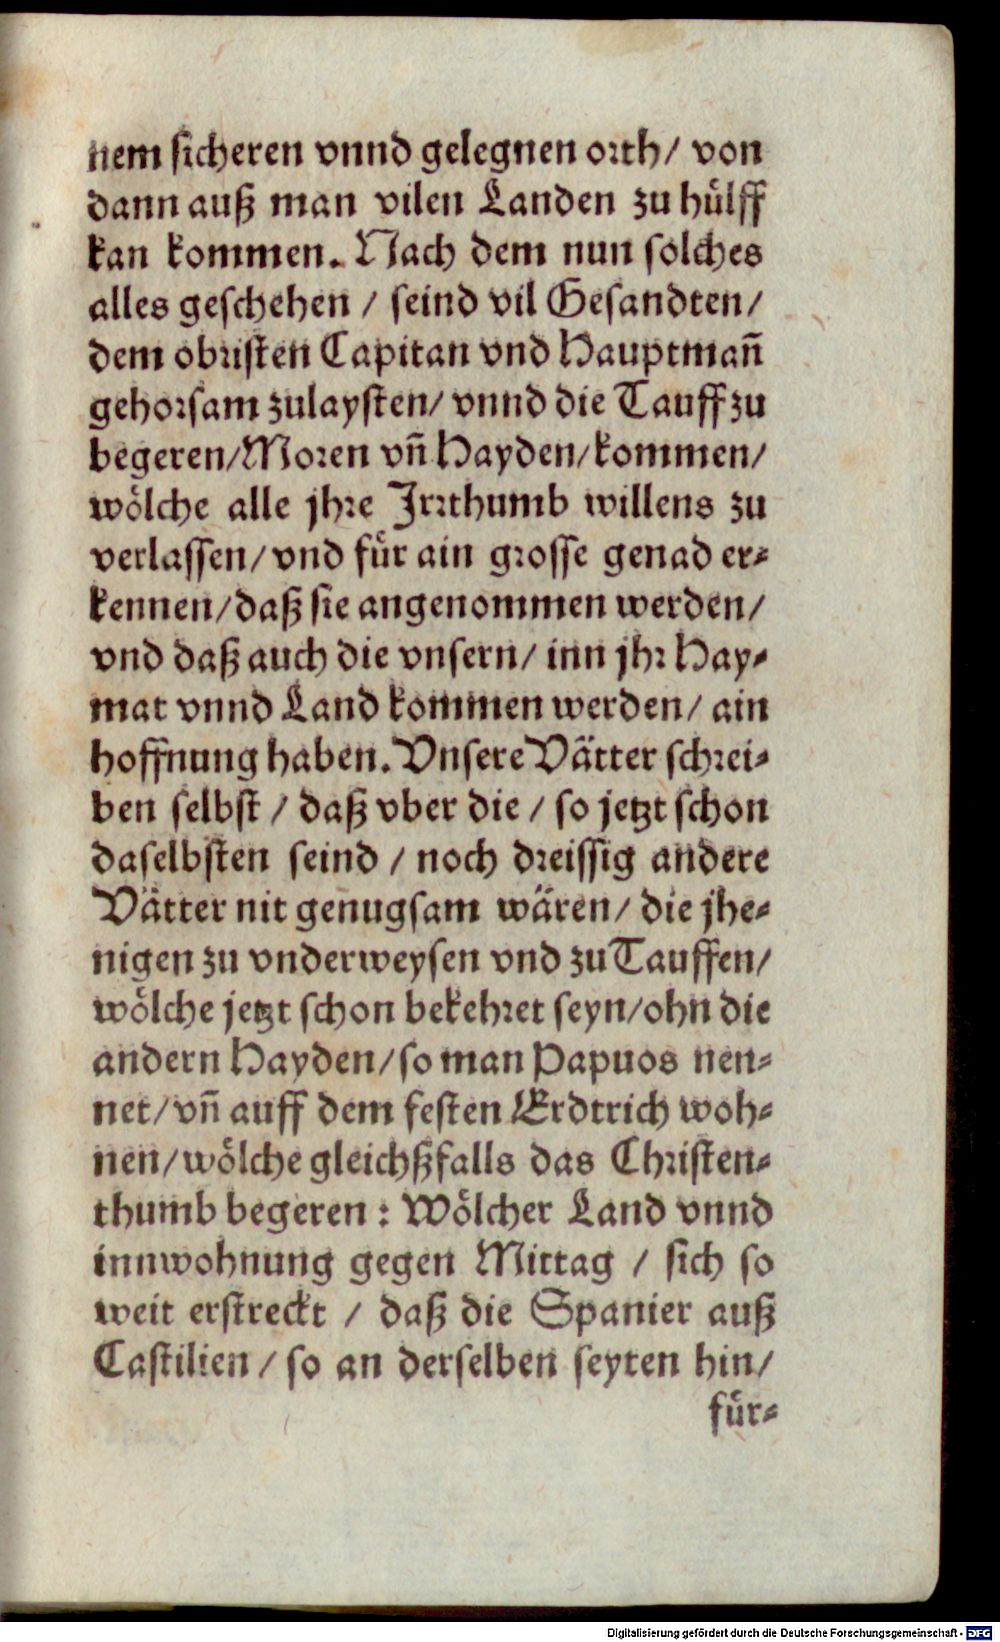 nem sicheren vnnd gelegnen orth/ von
dann auß man vilen Landen zu hülff
kan kommen. Nach dem nun solches
alles geschehen / seind vil Gesandten/
dem obristen Capitan vnd Hauptmañ
gehorsam zulaysten/ vnnd die Tauff zu
begeren/Moren vñ Hayden/kommen/
wölche alle jhre Irrthumb willens zu
verlassen/vnd für ain grosse genad er-
kennen/daß sie angenommen werden/
vnd daß auch die vnsern/ inn jhr Hay-
mat vnnd Land kommen werden/ ain
hoffnung haben. Vnsere Vätter schrei-
ben selbst / daß vber die / so jetzt schon
daselbsten seind / noch dreissig andere
Vätter nit genugsam wären/ die jhe-
nigen zu vnderweysen vnd zu Tauffen/
wölche jetzt schon bekehret seyn/ohn die
andern Hayden/so man Papuos nen-
net/vñ auff dem festen Erdtrich woh-
nen/wölche gleichßfalls das Christen-
thumb begeren : Wölcher Land vnnd
innwohnung gegen Mittag / sich so
weit erstreckt / daß die Spanier auß
Castilien / so an derselben seyten hin/
für-
Digitalisierung gefördert durch die Deutsche Forschungsgemeinschaft - DFG